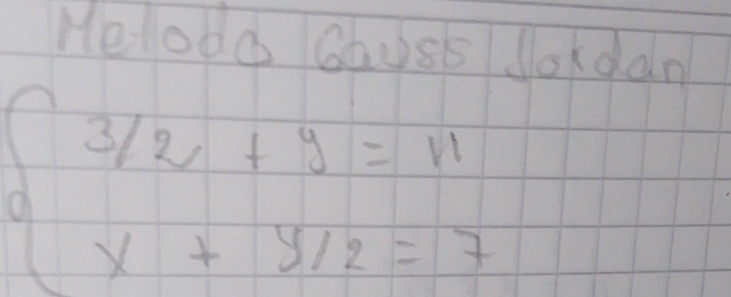 Metodo Gauss Jordan
3/2 + y = 11
x + y/2 = 7